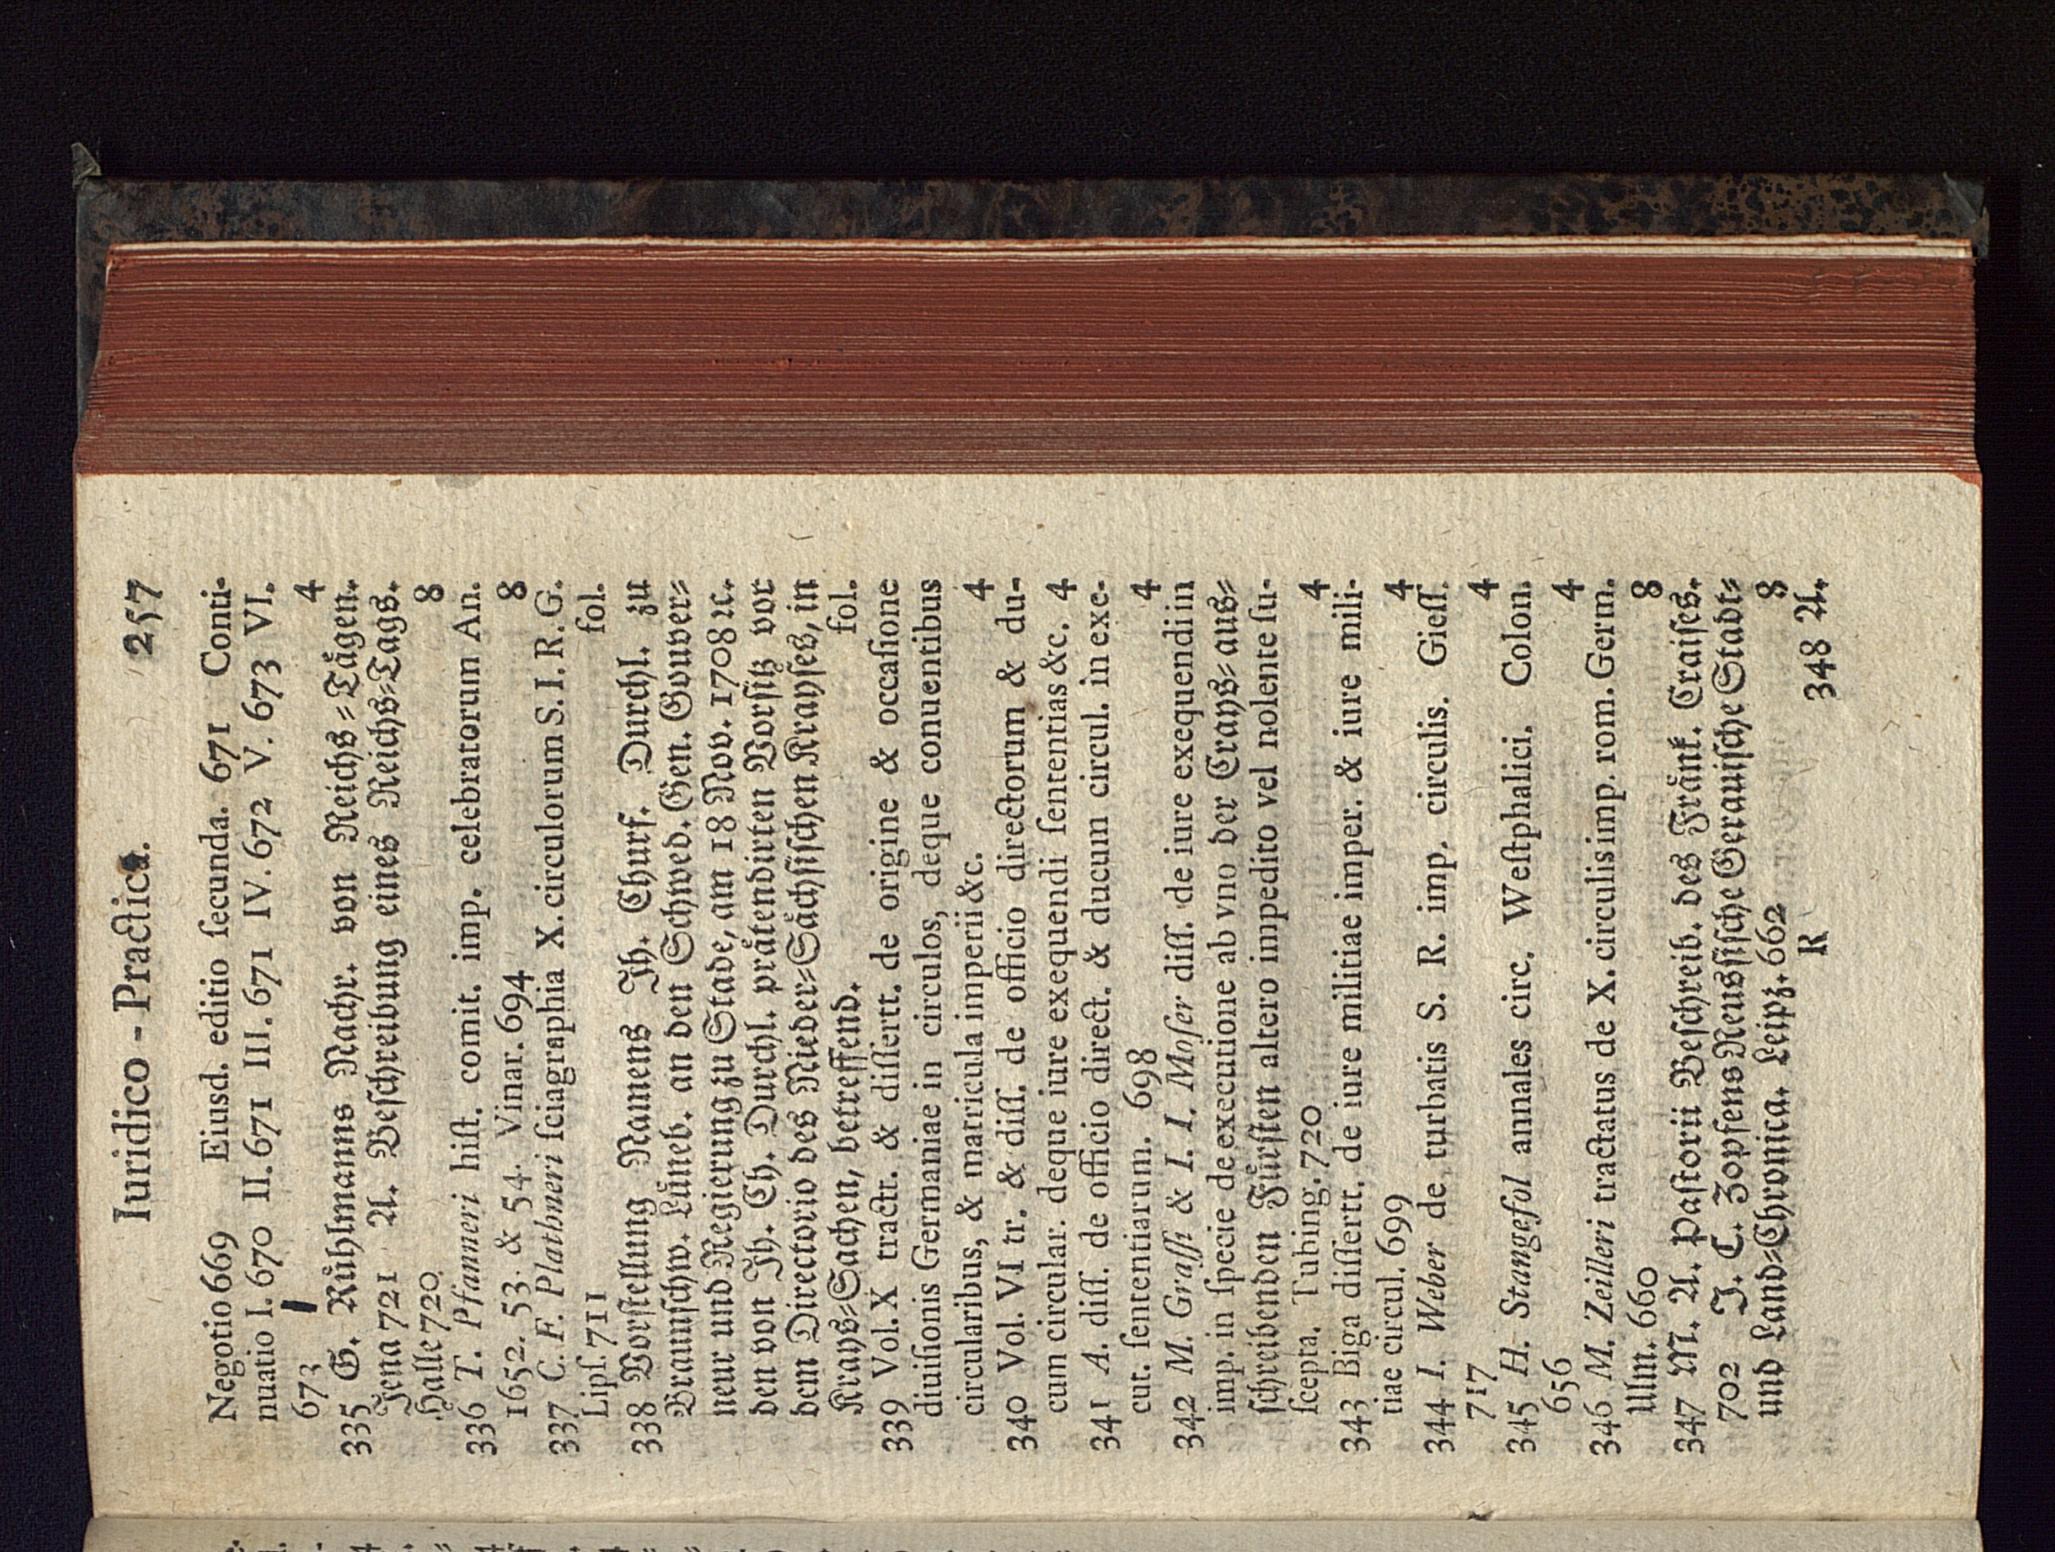 Iuridico - Practica. 257
Negotio 669 Eiusd. editio ſecunda. 671 Conti-
nuatio I. 670 II. 671 III. 671 IV. 672 V. 673 VI.
673 4
335 G. Rühlmanns Nachr. von Reichs-Tägen.
Jena 721 A. Beſchreibung eines Reichs-Tags.
Halle 720 8
336 T. Pfanneri hiſt. comit. imp. celebratorum An.
1652. 53. & 54. Vinar. 694 8
337 C. F. Plathneri ſciagraphia X. circulorum S. I. R. G.
Lipſ. 711 fol.
338 Vorſtellung Namens Jh. Churf. Durchl. zu
Braunſchw. Lüneb. an den Schwed. Gen. Gouver-
neur und Regierung zu Stade, am 18 Nov. 1708 ꝛc.
den von Jh. Ch. Durchl. prätendirten Vorſitz vor
dem Directorio des Nieder-Sächſiſchen Krayſes, in
Krays-Sachen, betreffend. fol.
339 Vol. X tractt. & diſſertt. de origine & occaſione
diuiſionis Germaniae in circulos, deque conuentibus
circularibus, & matricula imperii &c. 4
340 Vol. VI tr. & diſſ. de officio directorum & du-
cum circular. deque iure exequendi ſententias &c. 4
341 A. diſſ. de officio direct. & ducum circul. in exe-
cut. ſententiarum. 698 4
342 M. Graſſi & I. I. Moſer diſſ. de iure exequendi in
imp. in ſpecie de executione ab vno der Crays-aus-
ſchreibenden Fürſten altero impedito vel nolente ſu-
ſcepta. Tubing. 720 4
343 Biga diſſertt. de iure militiae imper. & iure mili-
tiae circul. 699 4
344 I. Weber de turbatis S. R. imp. circulis. Gieſſ.
717 4
345 H. Stangefol annales circ. Weſtphalici. Colon.
656 4
346 M. Zeilleri tractatus de X. circulis imp. rom. Germ.
Ulm. 660 8
347 M. A. Paſtorii Beſchreib. des Fränk. Craiſes.
702 J. C. Zopfens Reuſsiſche Gerauiſche Stadt-
und Land-Chronica. Leipz. 662 8
R 348 A.